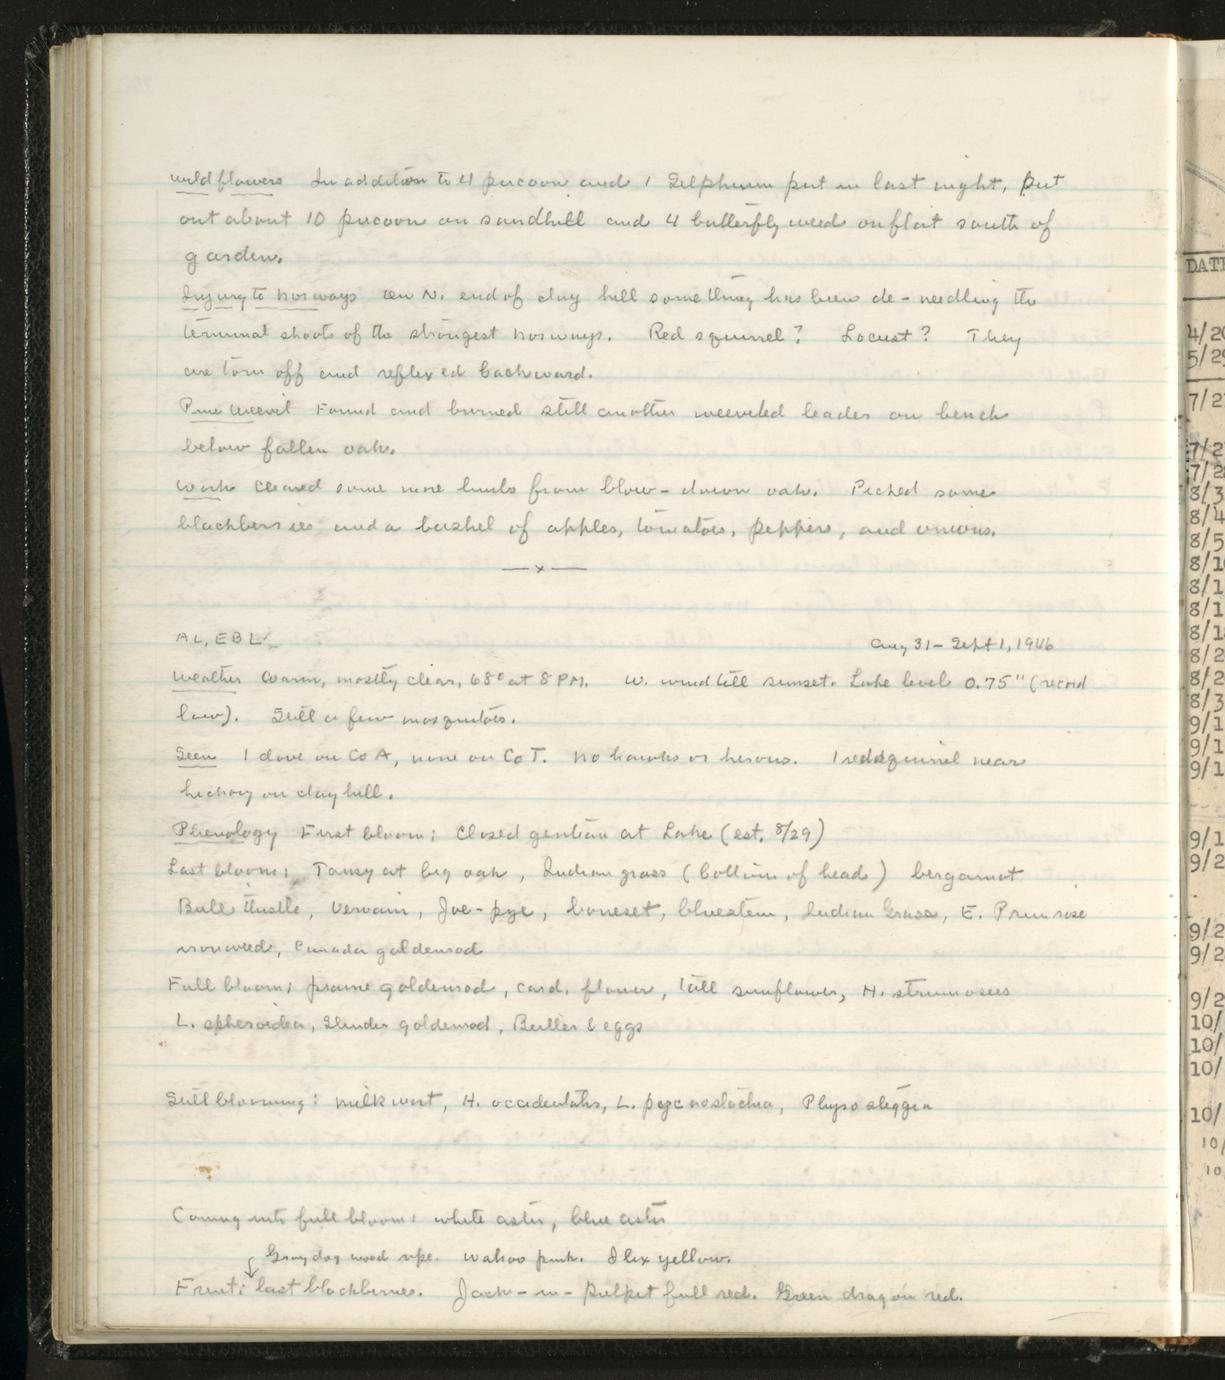 wildflowers In addition to 4 pucoon and 1 Silphium put in last night, put
out about 10 pucoon on sandhill and 4 butterfly weed on flat south of
garden.
Injury to norways On N. end of clay hill something has been de-needling the
terminal shoots of the strongest norways. Red squirrel? Locust? They
are torn off and reflexed backward.
Pine weevil Found and burned still another weeviled leader on bench
below fallen oak.
Work Cleared some more limbs from blow-down oak. Picked some
blackberries and a bushel of apples, tomatoes, peppers, and onions.
—x—
AL, EBL
Aug 31 - Sept 1, 1946
Weather Warm, mostly clear, 68° at 8 PM. W. wind till sunset. Lake level 0.75" (record
low). Still a few mosquitoes.
Seen 1 dove on Co A, none on Co T. No hawks or herons. 1 red squirrel near
hickory on clay hill.
Phenology First bloom: Closed gentian at Lake (est. 8/29)
Last bloom: Tansy at big oak, Indian grass (bottom of head) bergamot
Bull thistle, Vervain, Joe-pye, boneset, bluestem, Indian Grass, E. Primrose
ironweed, Canada goldenrod
Full bloom: prairie goldenrod, card. flower, tall sunflower, H. strumosus
L. spheroidea, Slender goldenrod, Butter & eggs
Still blooming: milkwort, H. occidentalis, L. pycnostachia, Physostegia
Coming into full bloom: white aster, blue aster
Gray dogwood ripe. Wahoo pink. Ilex yellow.
Fruit: last blackberries. Jack-in-Pulpit full red. Green dragon red.
DATE
4/20
5/29
7/2
7/2
7/2
8/3
8/4
8/5
8/1
8/1
8/1
8/1
8/2
8/2
8/3
9/1
9/1
9/1
9/1
9/2
9/2
9/2
9/2
10/
10/
10/
10/
10/
10